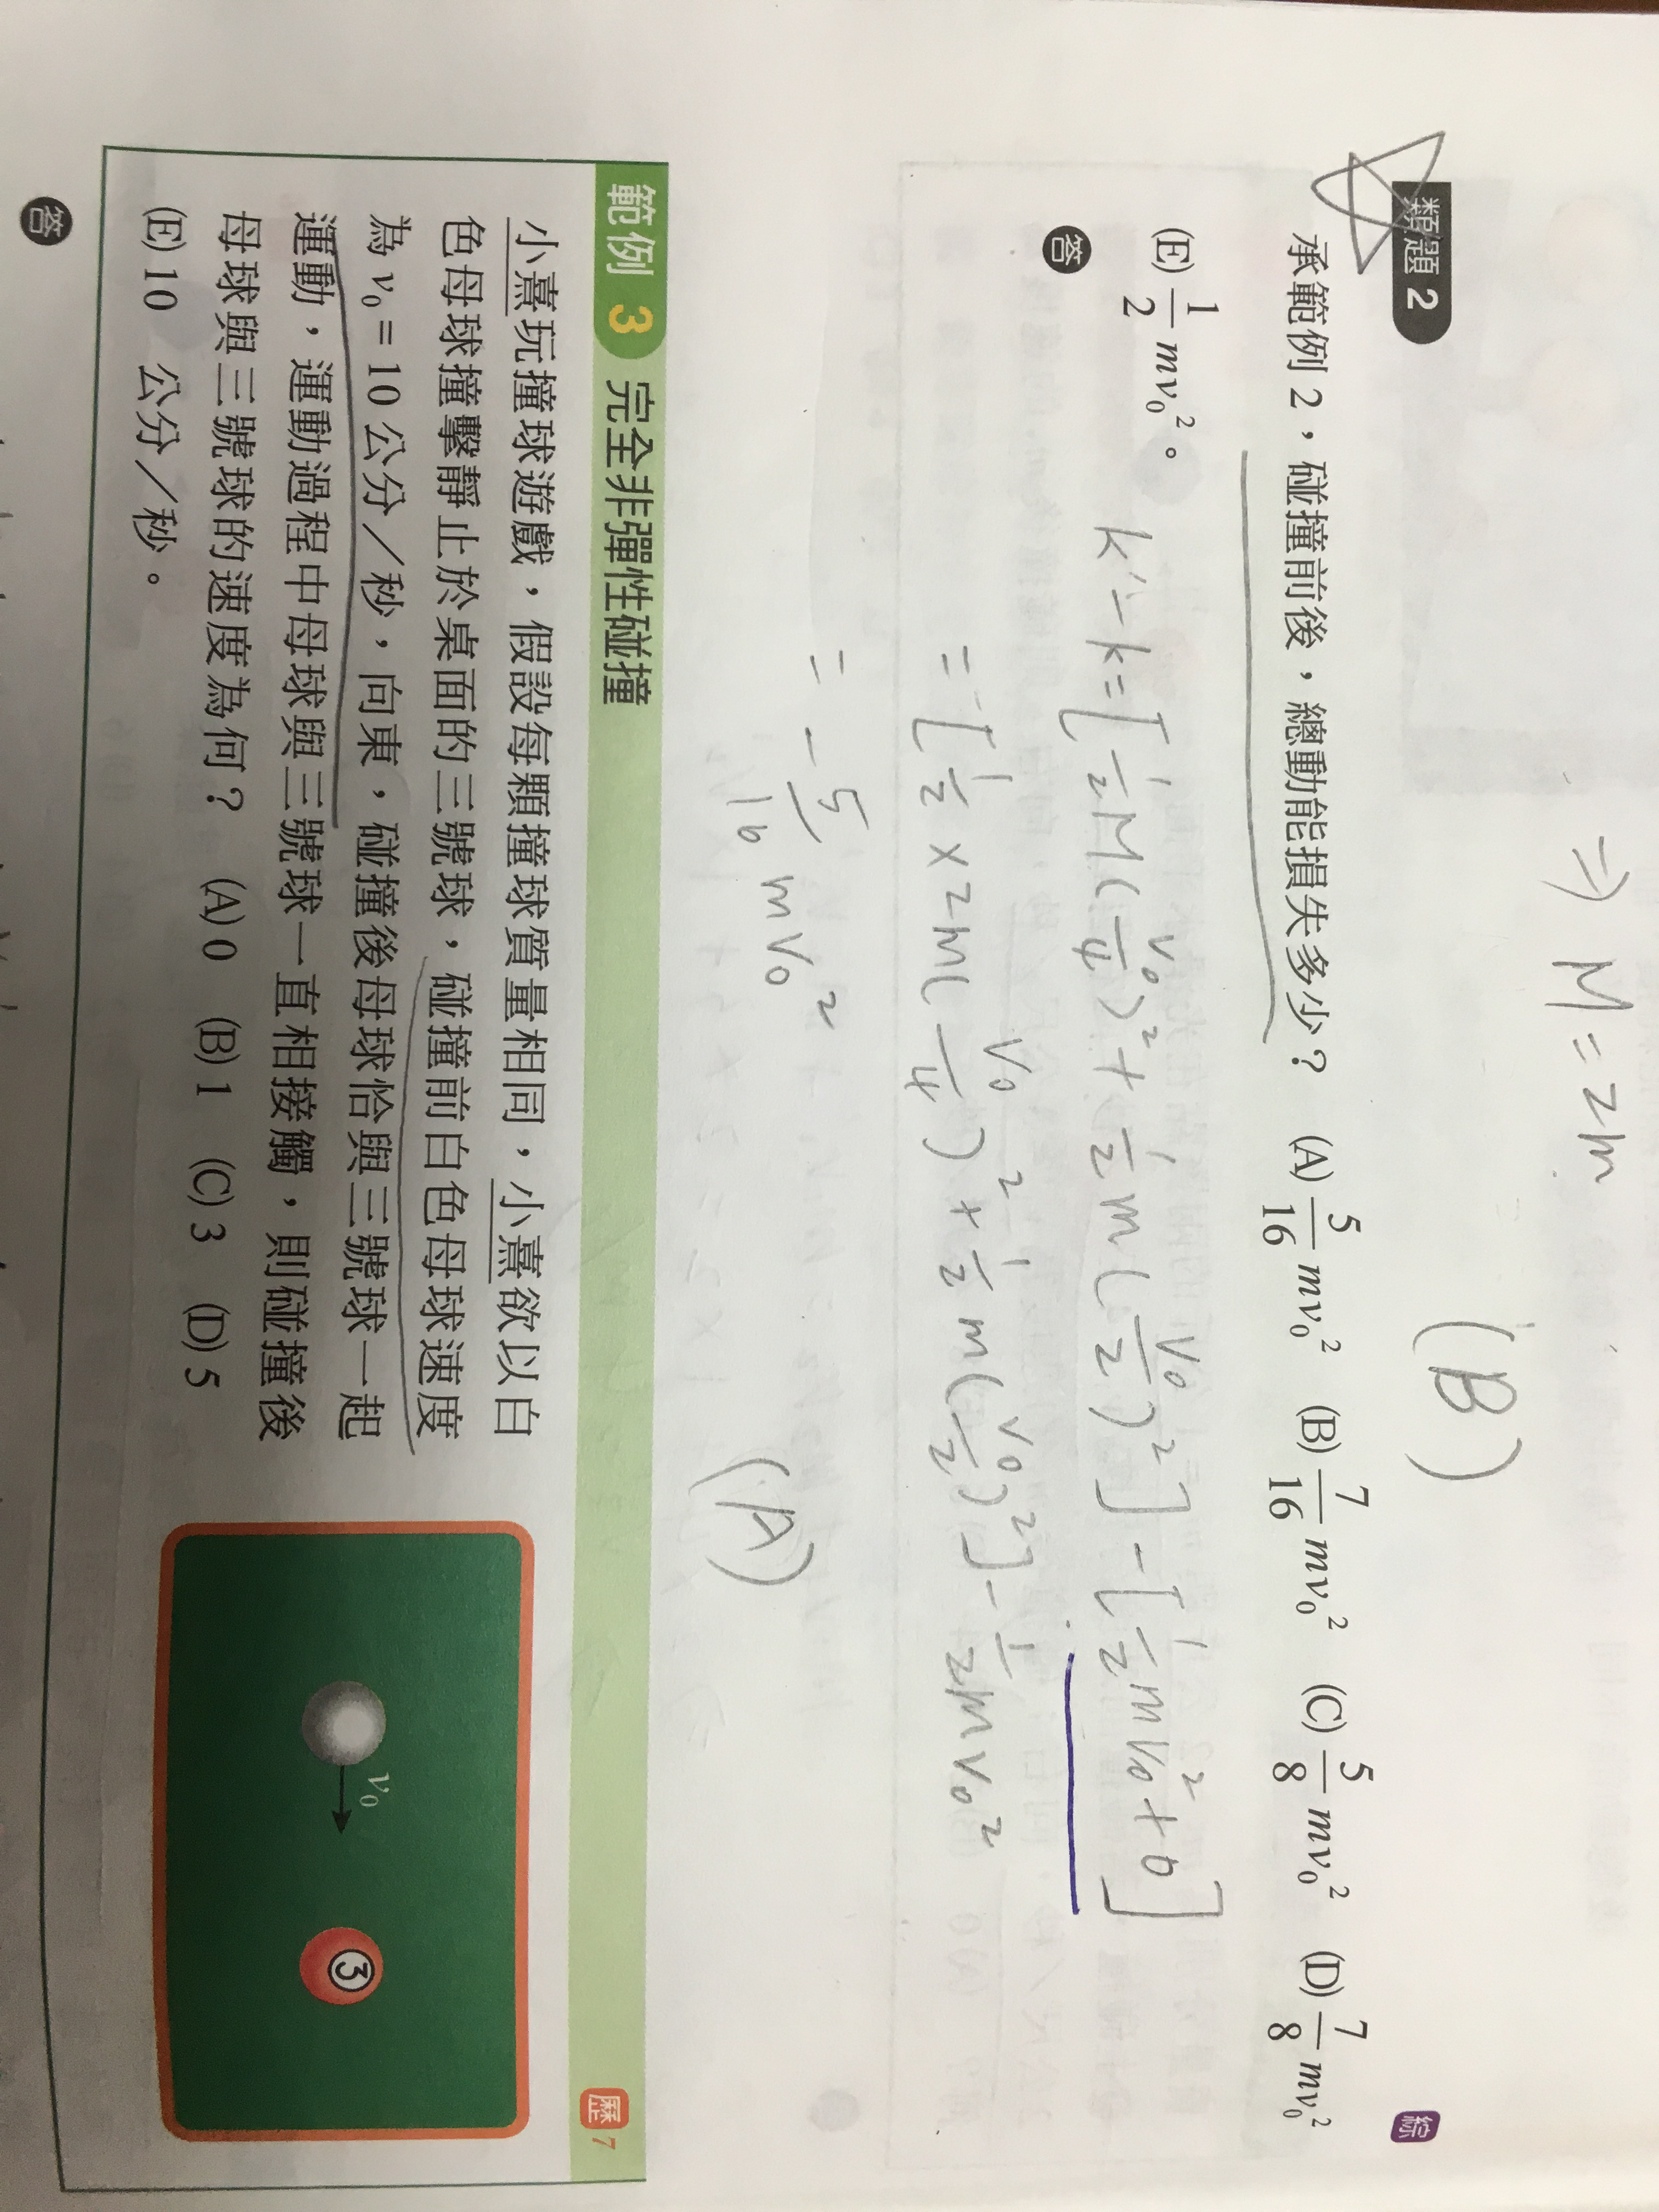 ⇒ M = 2m
(B)
類題 2
綜
承範例 2，碰撞前後，總動能損失多少？ (A) 5/16 mv₀² (B) 7/16 mv₀² (C) 5/8 mv₀² (D) 7/8 mv₀²
(E) 1/2 mv₀²。
答
k' - k = [1/2 M(v₀/4)² + 1/2 m(v₀/2)²] - [1/2 mv₀² + 0]
= [1/2 × 2m(v₀/4)² + 1/2 m(v₀/2)²] - 1/2 mv₀²
= - 5/16 mv₀²
(A)
範例 3 完全非彈性碰撞
歷 7
小熹玩撞球遊戲，假設每顆撞球質量相同，小熹欲以白
色母球撞擊靜止於桌面的三號球，碰撞前白色母球速度
為 v₀ = 10 公分／秒，向東，碰撞後母球恰與三號球一起
運動，運動過程中母球與三號球一直相接觸，則碰撞後
母球與三號球的速度為何？ (A) 0 (B) 1 (C) 3 (D) 5
(E) 10 公分／秒。
v₀
3
答